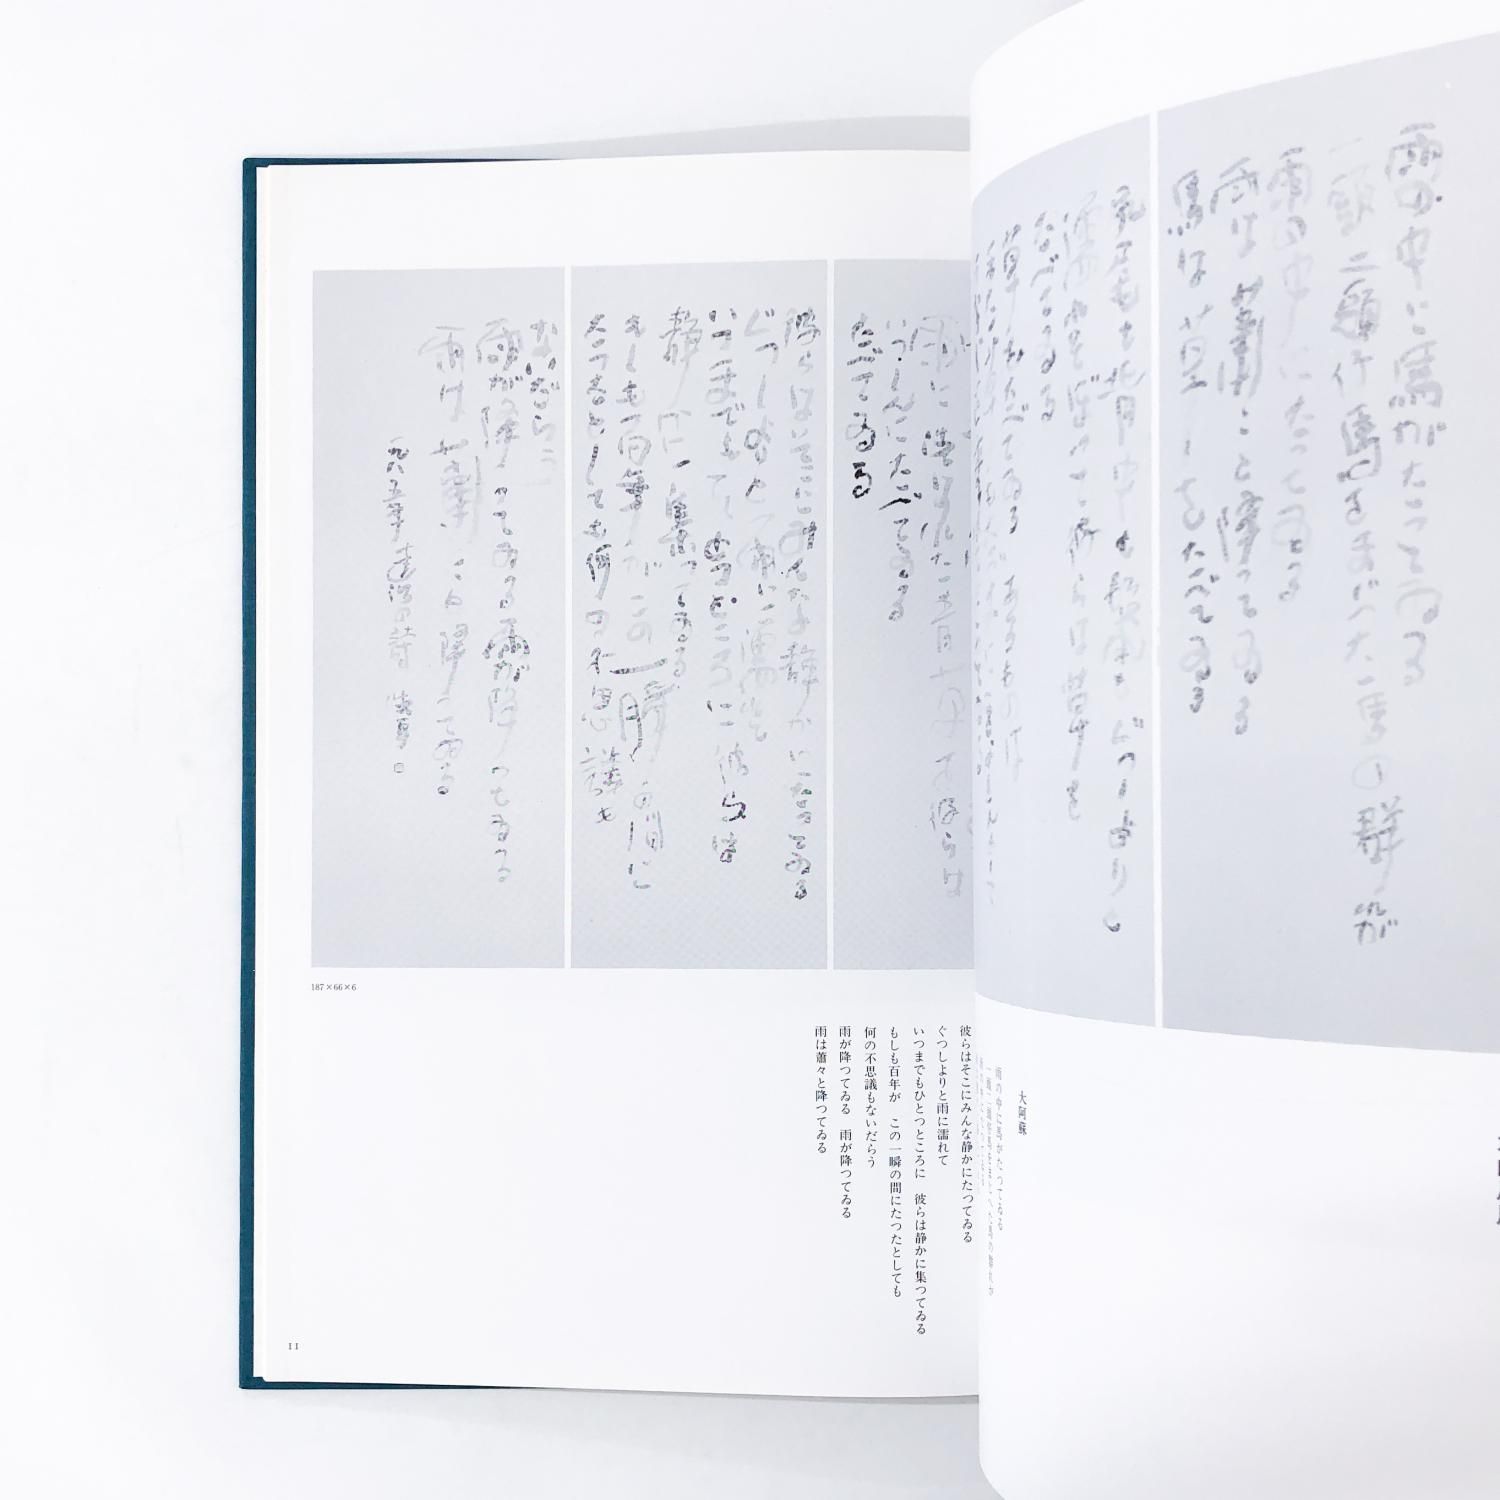 雨の中に馬がたつてゐる
一頭二頭仔馬をまじへた馬の群れが
雨の中にたつてゐる
雨は蕭々と降つてゐる
馬は草をたべてゐる
尻尾も背中も鬣も ぐつしよりと
濡れそぼつて彼らは草を
たべてゐる
草をたべてゐる
雨に洗はれた青草を彼らは
いつしんにたべてゐる
たべてゐる
彼らはそこにみんな静かにたつてゐる
ぐつしよりと雨に濡れて
いつまでもひとつところに 彼らは
静かに集つてゐる
もしも百年がこの一瞬の間に
たつたとしても何の不思議も
ないだらう
雨が降つてゐる雨が降つてゐる
雨は蕭々と降つてゐる
一九八五年 達治の詩
187×66×6
大阿蘇
雨の中に馬がたつてゐる
一頭二頭仔馬をまじへた馬の群れが
彼らはそこにみんな静かにたつてゐる
ぐつしよりと雨に濡れて
いつまでもひとつところに 彼らは静かに集つてゐる
もしも百年が この一瞬の間にたつたとしても
何の不思議もないだらう
雨が降つてゐる 雨が降つてゐる
雨は蕭々と降つてゐる
11